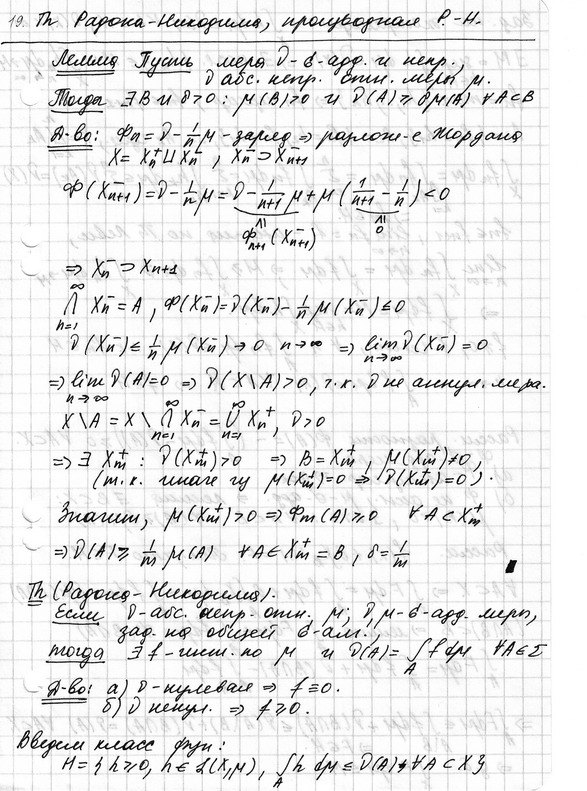 19. Th Радона-Никодима, производная Р.-Н.
Лемма Пусть мера ν - σ-адд. и непр.,
ν абс. непр. отн. меры μ.
Тогда ∃ B и δ>0: μ(B)>0 и ν(A) ≥ δμ(A) ∀A⊂B
Д-во: Φn = ν - 1/n μ - заряд ⇒ разлож-е Жордана
X = Xn⁺ ⊔ Xn⁻, Xn⁻ ⊃ X⁻n+1
Φ(X⁻n+1) = ν - 1/n μ = ν - 1/(n+1) μ + μ(1/(n+1) - 1/n) < 0
Φn+1(X⁻n+1) 0
⇒ Xn⁻ ⊃ Xn+1
∞⋂n=1 Xn⁻ = A, Φ(Xn⁻) = ν(Xn⁻) - 1/n μ(Xn⁻) ≤ 0
ν(Xn⁻) ≤ 1/n μ(Xn⁻) → 0 n→∞ ⇒ lim n→∞ ν(Xn⁻) = 0
⇒ lim n→∞ ν(A) = 0 ⇒ ν(X\A) > 0, т.к. ν не аннул. мера.
X\A = X \ ∞⋂n=1 Xn⁻ = ∞⋃n=1 Xn⁺, ν>0
⇒ ∃ Xm⁺ : ν(Xm⁺) > 0 ⇒ B = Xm⁺, μ(Xm⁺) ≠ 0,
(т.к. иначе μ(Xm⁺) = 0 ⇒ ν(Xm⁺) = 0).
Значит, μ(Xm⁺) > 0 ⇒ Φm(A) ≥ 0 ∀A⊂Xm⁺
⇒ ν(A) ≥ 1/m μ(A) ∀A⊂Xm⁺ = B, δ = 1/m
Th (Радона-Никодима).
Если ν-абс. непр. отн. μ; ν, μ - σ-адд. меры,
зад. на общей σ-алг.,
тогда ∃ f - инт. по μ и ν(A) = ∫A f dμ ∀A∈Σ
Д-во: а) ν - нулевая ⇒ f ≡ 0.
б) ν ненул. ⇒ f ≥ 0.
Введем класс функ:
H = { h ≥ 0, h ∈ L(X,μ), ∫A h dμ ≤ ν(A) ∀A⊂X }